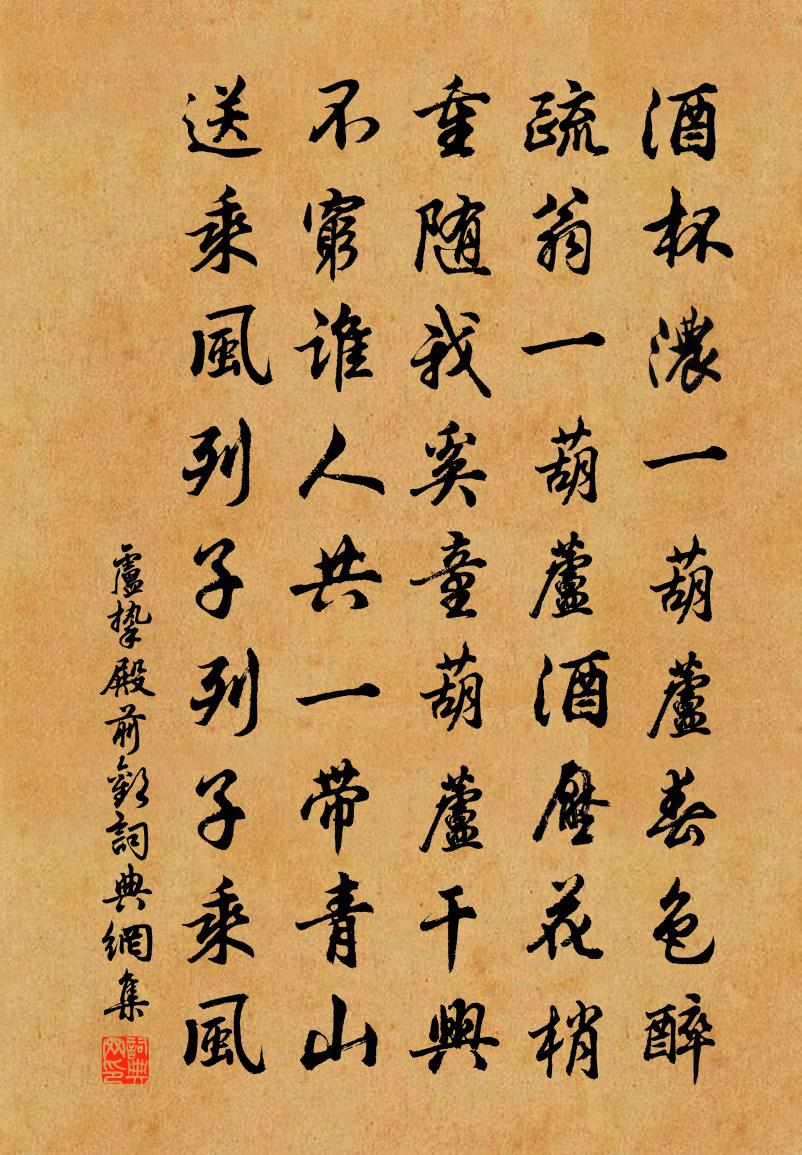 酒杯濃一葫蘆春色醉
疏翁一葫蘆酒壓花梢
重随我奚童葫蘆干興
不窮誰人共一带青山
送乘風列子列子乘風
盧摯殿前歡詞典網集
詞典網印